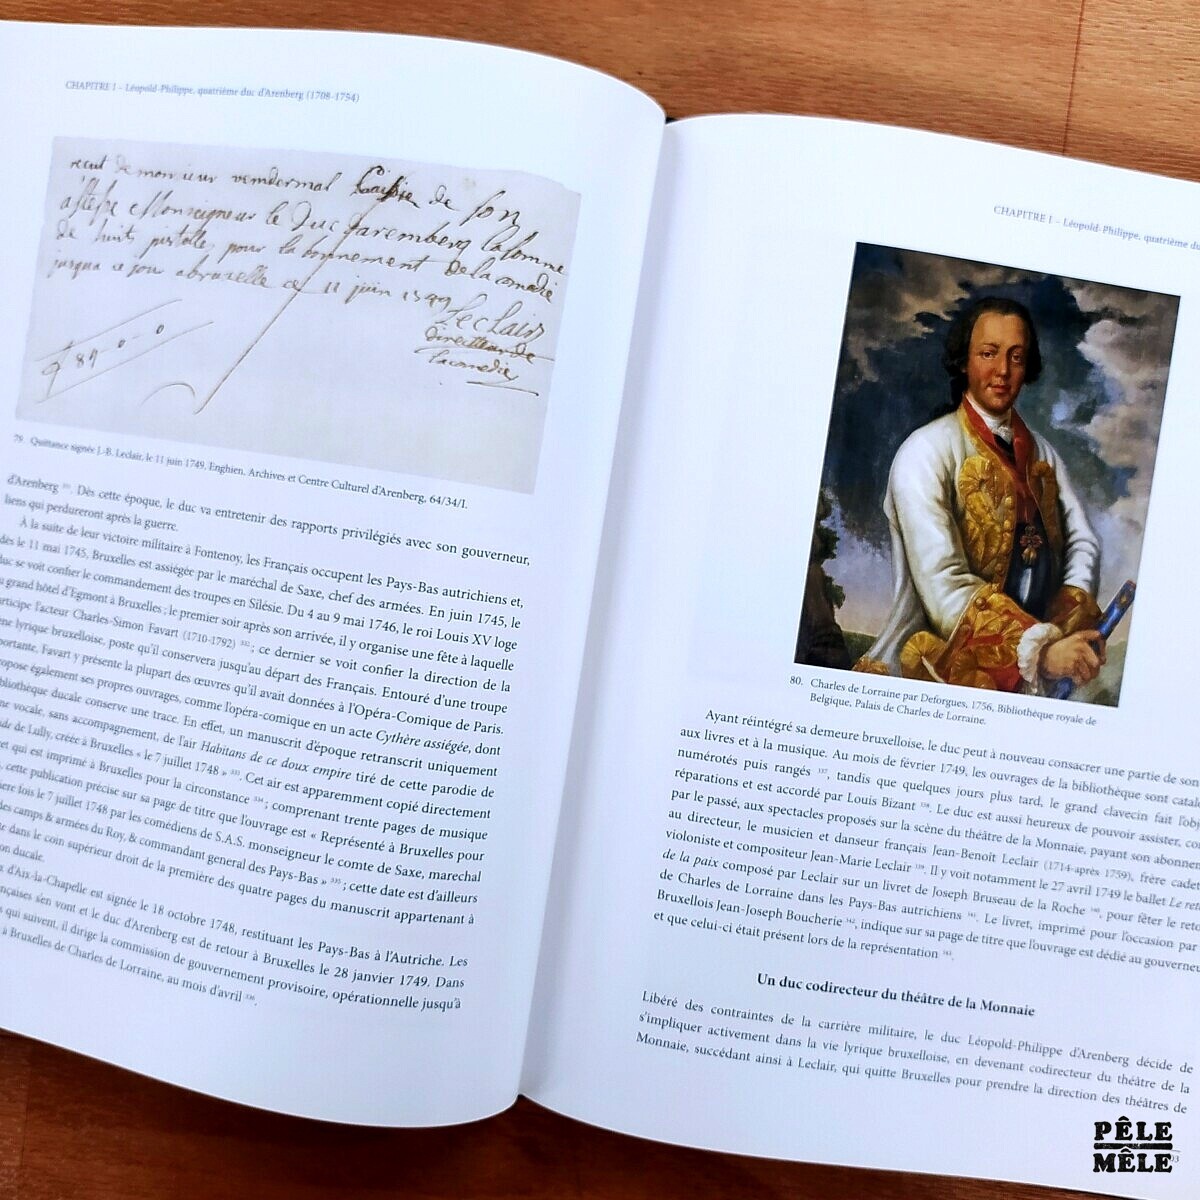 CHAPITRE I – Léopold-Philippe, quatrième duc d'Arenberg (1708-1754)
recut de monsieur vemdermal Caissie de son
altesse Monseigneur le Duc daremberg la somme
de huits pistolles pour la bonnement de la comedie
jusqua ce jour a bruxelle ce 11 juin 1749
Leclair
directeur de
la comedie
79. Quittance signée J.-B. Leclair, le 11 juin 1749, Enghien, Archives et Centre Culturel d'Arenberg, 64/34/I.
d'Arenberg. Dès cette époque, le duc va entretenir des rapports privilégiés avec son gouverneur,
liens qui perdureront après la guerre.
À la suite de leur victoire militaire à Fontenoy, les Français occupent les Pays-Bas autrichiens et,
dès le 11 mai 1745, Bruxelles est assiégée par le maréchal de Saxe, chef des armées. En juin 1745, le
duc se voit confier le commandement des troupes en Silésie. Du 4 au 9 mai 1746, le roi Louis XV loge
grand hôtel d'Egmont à Bruxelles ; le premier soir après son arrivée, il y organise une fête à laquelle
participe l'acteur Charles-Simon Favart (1710-1792) 332 ; ce dernier se voit confier la direction de la
lyrique bruxelloise, poste qu'il conservera jusqu'au départ des Français. Entouré d'une troupe
Favart y présente la plupart des œuvres qu'il avait données à l'Opéra-Comique de Paris.
également ses propres ouvrages, comme l'opéra-comique en un acte Cythère assiégée, dont
bibliothèque ducale conserve une trace. En effet, un manuscrit d'époque retranscrit uniquement
vocale, sans accompagnement, de l'air Habitans de ce doux empire tiré de cette parodie de
de Lully, créée à Bruxelles « le 7 juillet 1748 » 333. Cet air est apparemment copié directement
qui est imprimé à Bruxelles pour la circonstance 334 ; comprenant trente pages de musique
cette publication précise sur sa page de titre que l'ouvrage est « Représenté à Bruxelles pour
fois le 7 juillet 1748 par les comédiens de S.A.S. monseigneur le comte de Saxe, marechal
des camps & armées du Roy, & commandant general des Pays-Bas » 335 ; cette date est d'ailleurs
dans le coin supérieur droit de la première des quatre pages du manuscrit appartenant à
ducale.
d'Aix-la-Chapelle est signée le 18 octobre 1748, restituant les Pays-Bas à l'Autriche. Les
s'en vont et le duc d'Arenberg est de retour à Bruxelles le 28 janvier 1749. Dans
qui suivent, il dirige la commission de gouvernement provisoire, opérationnelle jusqu'à
à Bruxelles de Charles de Lorraine, au mois d'avril 336.
CHAPITRE I – Léopold-Philippe, quatrième du
80. Charles de Lorraine par Deforgues, 1756, Bibliothèque royale de
Belgique, Palais de Charles de Lorraine.
Ayant réintégré sa demeure bruxelloise, le duc peut à nouveau consacrer une partie de son
aux livres et à la musique. Au mois de février 1749, les ouvrages de la bibliothèque sont catal
numérotés puis rangés 337, tandis que quelques jours plus tard, le grand clavecin fait l'obj
réparations et est accordé par Louis Bizant 338. Le duc est aussi heureux de pouvoir assister, co
par le passé, aux spectacles proposés sur la scène du théâtre de la Monnaie, payant son abonnem
au directeur, le musicien et danseur français Jean-Benoît Leclair (1714-après 1759), frère cadet
violoniste et compositeur Jean-Marie Leclair 339. Il y voit notamment le 27 avril 1749 le ballet Le reto
de la paix composé par Leclair sur un livret de Joseph Bruseau de la Roche 340, pour fêter le reto
de Charles de Lorraine dans les Pays-Bas autrichiens 341. Le livret, imprimé pour l'occasion par
Bruxellois Jean-Joseph Boucherie 342, indique sur sa page de titre que l'ouvrage est dédié au gouverneu
et que celui-ci était présent lors de la représentation 343.
Un duc codirecteur du théâtre de la Monnaie
Libéré des contraintes de la carrière militaire, le duc Léopold-Philippe d'Arenberg décide de
s'impliquer activement dans la vie lyrique bruxelloise, en devenant codirecteur du théâtre de la
Monnaie, succédant ainsi à Leclair, qui quitte Bruxelles pour prendre la direction des théâtres de
PÊLE
MÊLE